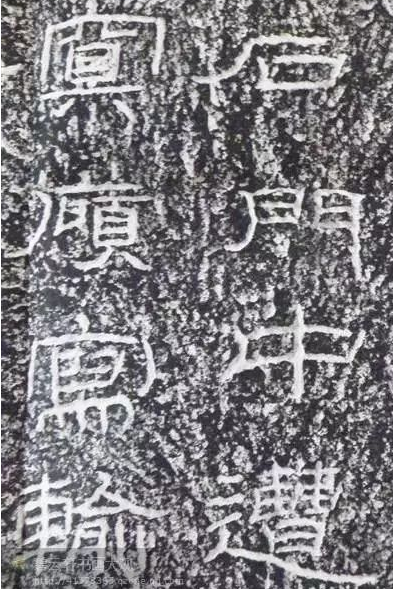 石門中遭
冥廎寫輸